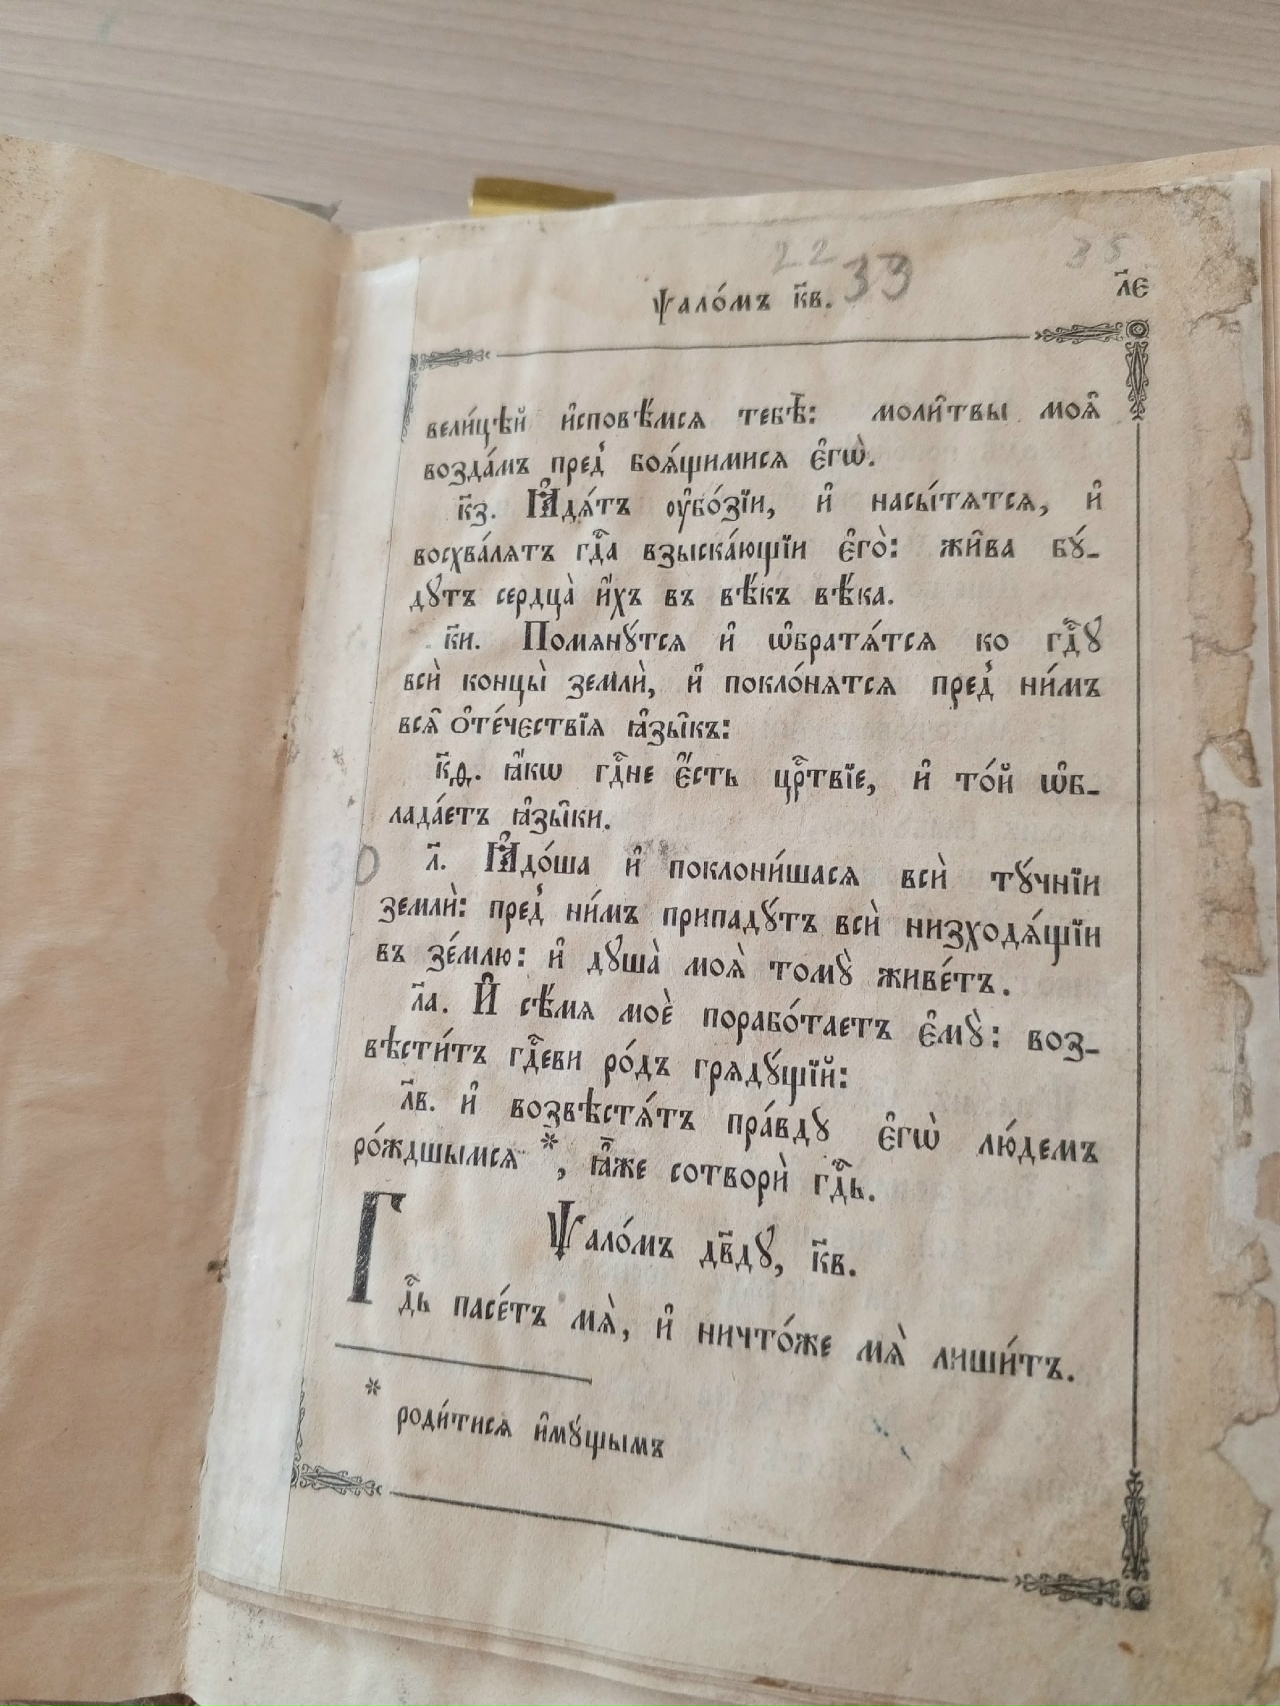 22 33 35
Ѱало́мъ к҃в. л҃є
вели́цѣй и҆сповѣ́мся тебѣ̀: моли̑твы моѧ̑
возда́мъ пред̾ боѧ́щимисѧ є҆гѡ̀.
к҃з. Ꙗ҆дѧ́тъ ᲂу҆бо́зїи, и҆ насы́тѧтсѧ, и҆
восхва́лѧтъ гдⷭ҇а взыска́ющїи є҆го̀: жи̑ва бꙋ́-
дꙋтъ сердца̀ и҆́хъ въ вѣ́къ вѣ́ка.
к҃и. Помѧнꙋ́тсѧ и҆ ѡ҆братѧ́тсѧ ко гдⷭ҇ꙋ
всѝ концы̀ землѝ, и҆ покло́нѧтсѧ пред̾ ни́мъ
всѧ̑ ѻ҆те́чєствїѧ ꙗ҆зы̑къ:
к҃ѳ. ꙗ҆́кѡ гдⷭ҇не є҆́сть црⷭ҇твїе, и҆ то́й ѡ҆б-
лада́етъ ꙗ҆зы̑ки.
30 л҃. Ꙗ҆до́ша и҆ поклони́шасѧ всѝ тꙋ́чнїи
землѝ: пред̾ ни́мъ припадꙋ́тъ всѝ низходѧ́щїи
въ зе́млю: и҆ дꙋша̀ моѧ̀ томꙋ̀ живе́тъ.
л҃а. И҆ сѣ́мѧ моѐ порабо́таетъ є҆мꙋ̀: воз-
вѣсти́тъ гдⷭ҇еви ро́дъ грѧдꙋ́щїй:
л҃в. и҆ возвѣстѧ́тъ пра́вдꙋ є҆гѡ̀ лю́демъ
ро́ждшымсѧ *, ꙗ҆̀же сотворѝ гдⷭ҇ь.
Ѱало́мъ дв҃дꙋ, к҃в.
Гдⷭ҇ь пасе́тъ мѧ̀, и҆ ничто́же мѧ̀ лиши́тъ.
* роди́тисѧ и҆мꙋ́щымъ